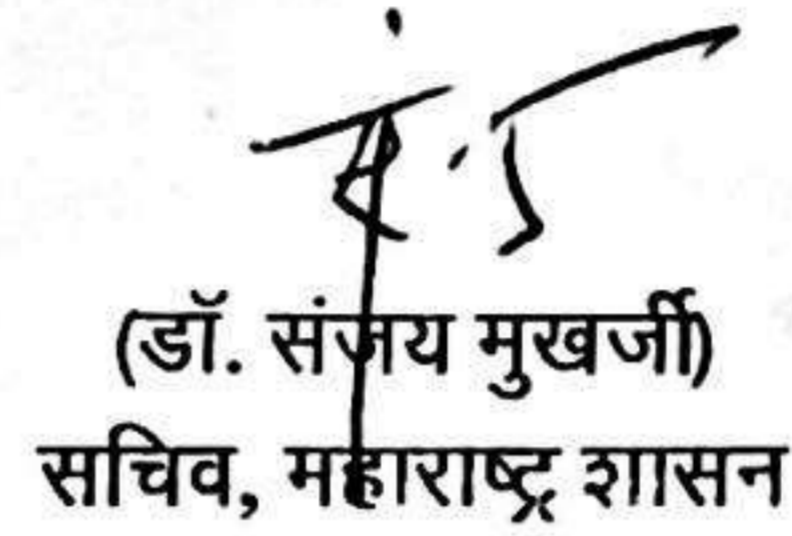 (डॉ. संजय मुखर्जी)
सचिव, महाराष्ट्र शासन